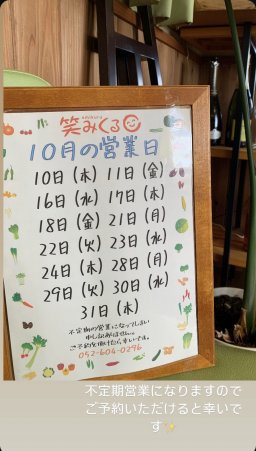 emikuru
笑みくる
10月の営業日
10日(木) 11日(金)
16日(水) 17日(木)
18日(金) 21日(月)
22日(火) 23日(水)
24日(木) 28日(月)
29日(火) 30日(水)
31日(木)
不定期の営業になってしまい
申し訳ありません。
ご予約を頂けたら幸いです。
052-604-0296
不定期営業になりますので
ご予約いただけると幸いで
す✨